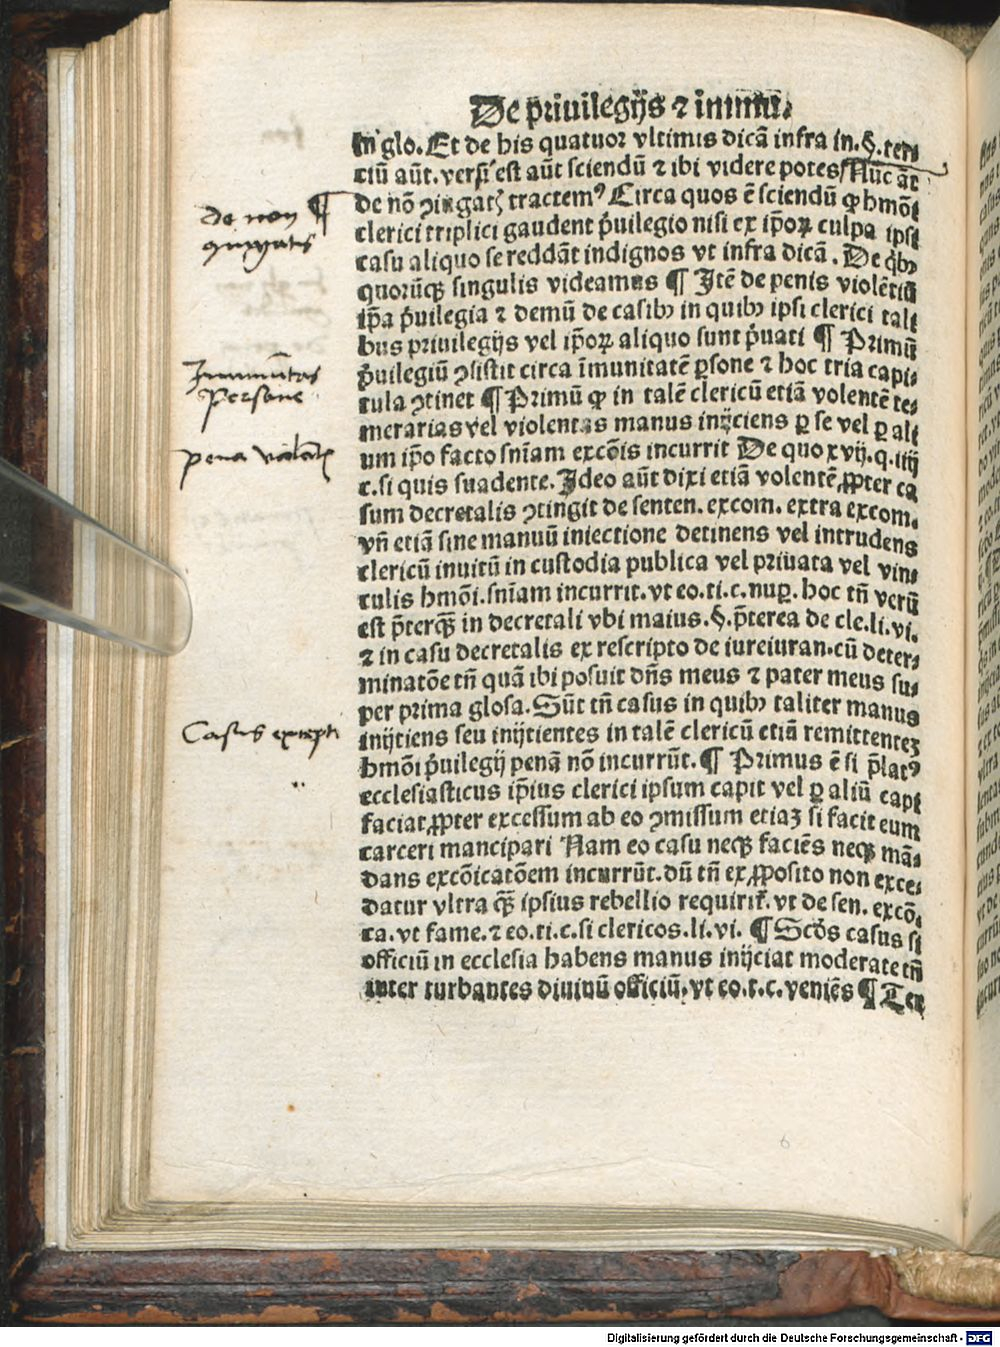 De priuilegijs ⁊ immu.
in glo. Et de his quatuor vltimis dicā infra in. §. ter⸗
ciū aūt. versi. est aūt sciendū ⁊ ibi videre potes Nūc āt
de nō ꝯiugatꝭ tractemꝰ Circa quos ē sciendū ꝙ hmōi
clerici triplici gaudent p̄uilegio nisi ex ip̄oꝝ culpa ipsi
casu aliquo se reddāt indignos vt infra dicā. De qͥbꝫ
quorūqꝫ singulis videamus ¶ Itē de penis violētiū
ip̄a p̄uilegia ⁊ demū de casibꝫ in quibꝫ ipsi clerici tali
bus priuilegijs vel ip̄oꝝ aliquo sunt p̄uati ¶ Primū
p̄uilegiū ꝯsistit circa īmunitatē ꝑsone ⁊ hoc tria capi⸗
tula ꝯtinet ¶ Primū ꝙ in talē clericū etiā volentē te⸗
merarias vel violentas manus inijciens ꝑ se vel ꝑ ali
um ip̄o facto sn̄iam excōis incurrit De quo xvij. q. iiij
c. si quis suadente. Ideo aūt dixi etiā volentē ꝓpter ca
sum decretalis ꝯtingit de senten. excom. extra excom.
vn̄ etiā sine manuū iniectione detinens vel intrudens
clericū inuitū in custodia publica vel priuata vel vin⸗
culis hmōi. sn̄iam incurrit. vt eo. ti. c. nuꝑ. hoc tn̄ verū
est p̄terqꝫ in decretali vbi maius. §. p̄terea de cle. li. vi.
⁊ in casu decretalis ex rescripto de iureiuran. cū deter⸗
minatōe tn̄ quā ibi posuit dn̄s meus ⁊ pater meus su⸗
per prima glosa. Sūt tn̄ casus in quibꝫ taliter manus
inijciens seu inijcientes in talē clericū etiā remittenteꝫ
hmōi p̄uilegij penā nō incurrūt. ¶ Primus ē si p̄latꝰ
ecclesiasticus ip̄ius clerici ipsum capit vel ꝑ aliū capi
faciat ꝓpter excessum ab eo ꝯmissum etiaꝫ si facit eum
carceri mancipari Nam eo casu neqꝫ faciēs neqꝫ mā⸗
dans excōicatōem incurrūt. dū tn̄ ex ꝓposito non exce⸗
datur vltra qꝫ ipsius rebellio requirit. vt de sen. excō.
ca. vt fame. ⁊ eo. ti. c. si clericos. li. vi. ¶ Scd̄s casus si
officiū in ecclesia habens manus inijciat moderate tn̄
inter turbantes diuinū officiū. vt eo. t. c. veniēs ¶ Ter
de non ¶
Immunitas
persone
pena violāt
Casus excepti
Digitalisierung gefördert durch die Deutsche Forschungsgemeinschaft - DFG